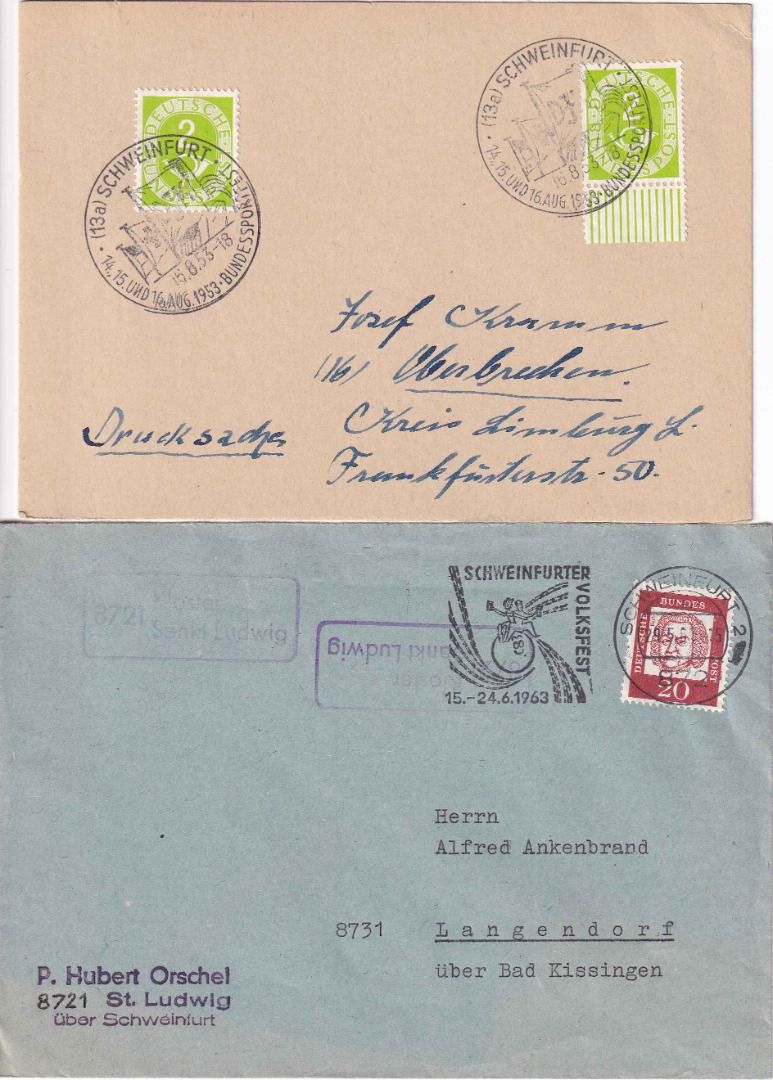 DEUTSCHE
2
(13a) SCHWEINFURT
16.8.53-18
14., 15. UND 16. AUG. 1953 · BUNDESSPORTFEST
(13a) SCHWEINFURT
16.8.53-18
14., 15. UND 16. AUG. 1953 · BUNDESSPORTFEST
Josef Kramm
(16) Oberbrechen.
Drucksache
Kreis Limburg L.
Frankfurterstr. 50.
8721
Sankt Ludwig
Sankt Ludwig
SCHWEINFURTER
VOLKSFEST
15.-24.6.1963
SCHWEINFURT 2
872
DEUTSCHE
BUNDES
POST
20
Herrn
Alfred Ankenbrand
8731 Langendorf
über Bad Kissingen
P. Hubert Orschel
8721 St. Ludwig
über Schweinfurt